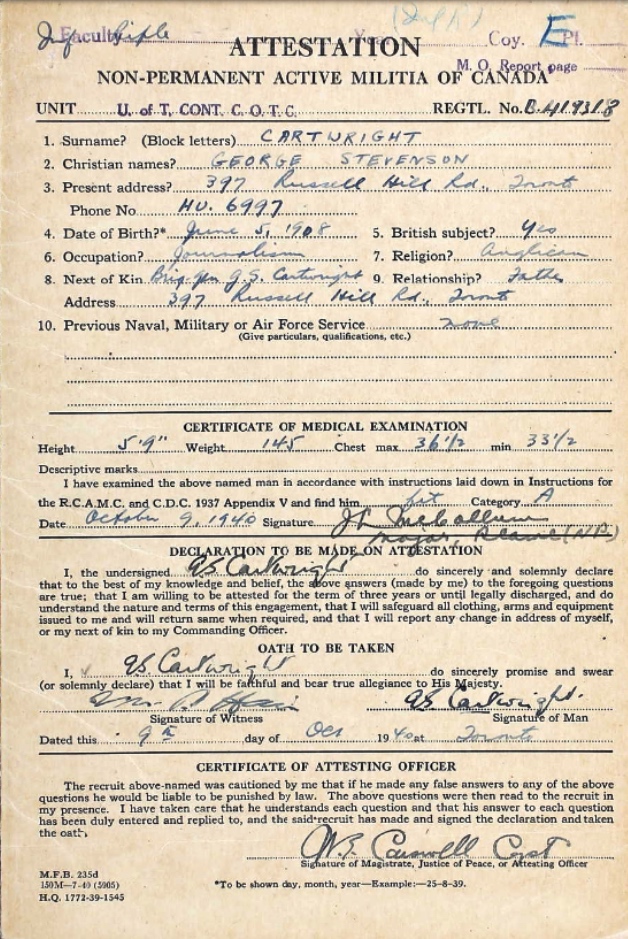 Faculty Coy. E Pl.
ATTESTATION
M. O. Report page
NON-PERMANENT ACTIVE MILITIA OF CANADA
UNIT U. of T. CONT. C. O. T. C. REGTL. No. B.419318
1. Surname? (Block letters) CARTWRIGHT
2. Christian names? GEORGE STEVENSON
3. Present address? 397 Russell Hill Rd., Toronto
Phone No. HU. 6997
4. Date of Birth?* June 5, 1908 5. British subject? Yes
6. Occupation? Journalism 7. Religion? Anglican
8. Next of Kin Brig-Gen G.S. Cartwright 9. Relationship? Father
Address 397 Russell Hill Rd., Toronto
10. Previous Naval, Military or Air Force Service none
(Give particulars, qualifications, etc.)
CERTIFICATE OF MEDICAL EXAMINATION
Height 5'9" Weight 145 Chest max 36 1/2 min 33 1/2
Descriptive marks
I have examined the above named man in accordance with instructions laid down in Instructions for
the R.C.A.M.C. and C.D.C. 1937 Appendix V and find him fit Category A
Date October 9, 1940 Signature
Major,
DECLARATION TO BE MADE ON ATTESTATION
I, the undersigned GS Cartwright do sincerely and solemnly declare
that to the best of my knowledge and belief, the above answers (made by me) to the foregoing questions
are true; that I am willing to be attested for the term of three years or until legally discharged, and do
understand the nature and terms of this engagement, that I will safeguard all clothing, arms and equipment
issued to me and will return same when required, and that I will report any change in address of myself,
or my next of kin to my Commanding Officer.
OATH TO BE TAKEN
I, GS Cartwright do sincerely promise and swear
(or solemnly declare) that I will be faithful and bear true allegiance to His Majesty.
GS Cartwright.
Signature of Witness Signature of Man
Dated this 9th day of Oct 1940 at Toronto
CERTIFICATE OF ATTESTING OFFICER
The recruit above-named was cautioned by me that if he made any false answers to any of the above
questions he would be liable to be punished by law. The above questions were then read to the recruit in
my presence. I have taken care that he understands each question and that his answer to each question
has been duly entered and replied to, and the said recruit has made and signed the declaration and taken
the oath.
Signature of Magistrate, Justice of Peace, or Attesting Officer
M.F.B. 235d
150M—7-40 (5905)
H.Q. 1772-39-1545
*To be shown day, month, year—Example:—25-8-39.